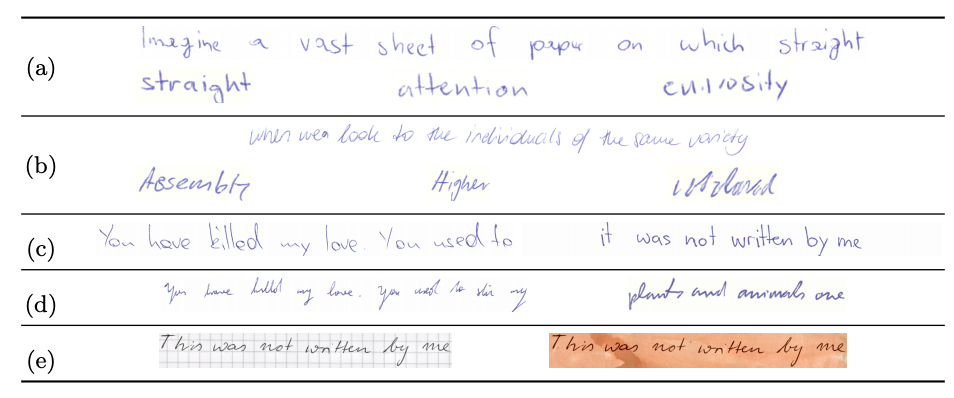 (a)
Imagine a vast sheet of paper on which straight
straight attention curiosity
(b)
when we look to the individuals of the same variety
Assembly Higher
(c)
You have killed my love. You used to it was not written by me
(d)
You have killed my love. You used to stir my plants and animals are
(e)
This was not written by me This was not written by me